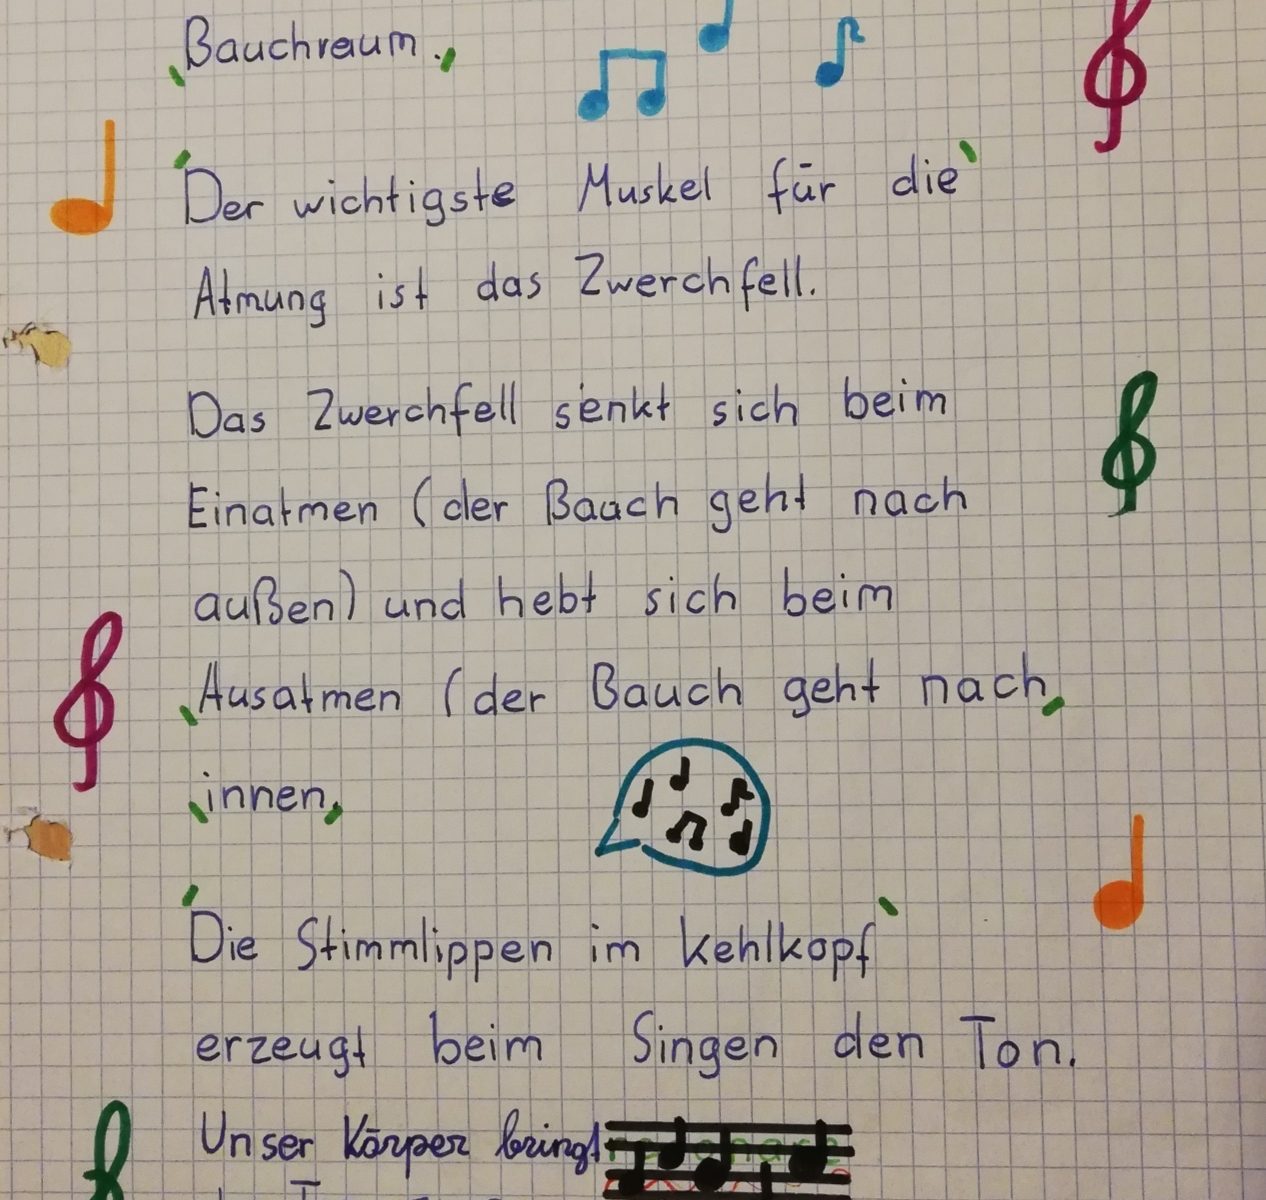 Bauchraum.
Der wichtigste Muskel für die
Atmung ist das Zwerchfell.
Das Zwerchfell senkt sich beim
Einatmen (der Bauch geht nach
außen) und hebt sich beim
Ausatmen (der Bauch geht nach
innen.
Die Stimmlippen im Kehlkopf
erzeugt beim Singen den Ton.
Unser Körper bringt